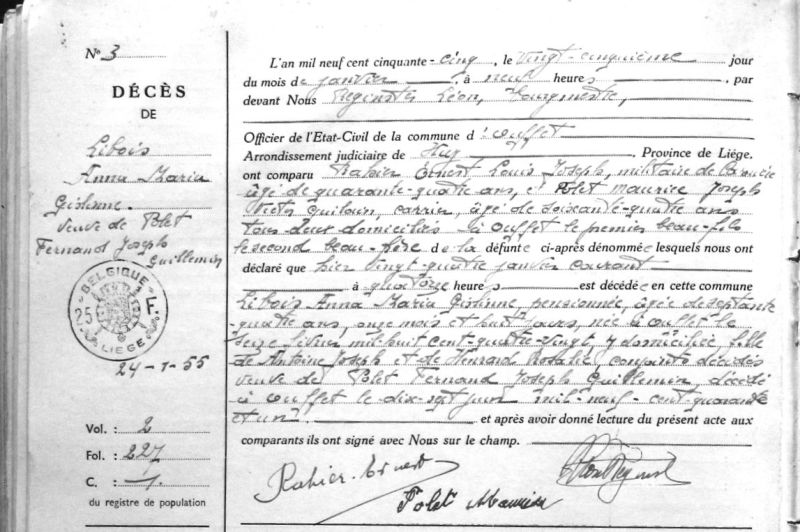 N° 3
DÉCÈS
DE
Libois
Anna Maria
Gislinne
veuve de Polet
Fernand Joseph
Guillemin
BELGIQUE
25 F.
LIEGE
24-1-55
Vol. : 2
Fol. : 227
C. : 1
du registre de population
L'an mil neuf cent cinquante-cinq, le vingt-cinquième jour
du mois de janvier, à neuf heures, par
devant Nous Reginster Léon, bourgmestre,
Officier de l'Etat-Civil de la commune d'Ouffet
Arrondissement judiciaire de Huy, Province de Liége.
ont comparu Rahier Ernest Louis Joseph, militaire de carrière
âgé de quarante-quatre ans, et Polet Maurice Joseph
Victor Guilain, carrier, âgé de soixante-quatre ans
tous deux domiciliés à Ouffet le premier beau-fils
le second beau-frère de la défunte ci-après dénommée lesquels nous ont
déclaré que hier vingt-quatre janvier courant
à quatorze heures est décédée en cette commune
Libois Anna Maria Gislinne, pensionnée, âgée de septante
quatre ans, onze mois et huit jours, née à Ouffet le
seize février mil huit cent quatre-vingt, y domiciliée, fille
de Antoine Joseph et de Henrard Rosalie, conjoints décédés
veuve de Polet Fernand Joseph Guillemin, décédé
à Ouffet le dix-sept juin mil-neuf-cent-quarante
et un. et après avoir donné lecture du présent acte aux
comparants ils ont signé avec Nous sur le champ.
Rahier-Ernest
Polet Maurice